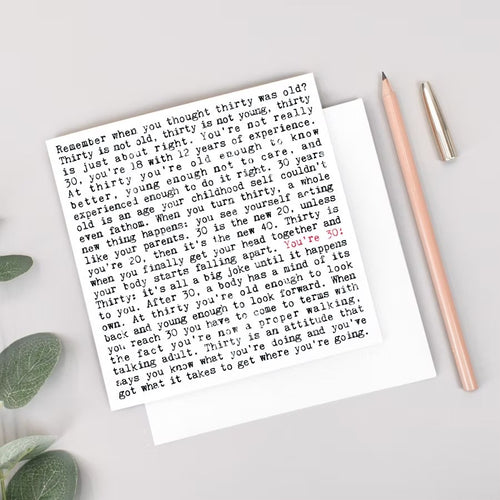 Remember when you thought thirty was old?
Thirty is not old, thirty is not young, thirty
is just about right. You're not really
30, you're 18 with 12 years of experience.
At thirty you're old enough to know
better, young enough not to care, and
experienced enough to do it right. 30 years
old is an age your childhood self couldn't
even fathom. When you turn thirty, a whole
new thing happens: you see yourself acting
like your parents. 30 is the new 20, unless
you're 20, then it's the new 40. Thirty is
when you finally get your head together and
your body starts falling apart. You're 30:
Thirty: it's all a big joke until it happens
to you. After 30, a body has a mind of its
own. At thirty you're old enough to look
back and young enough to look forward. When
you reach 30 you have to come to terms with
the fact you're now a proper walking,
talking adult. Thirty is an attitude that
says you know what you're doing and you've
got what it takes to get where you're going.